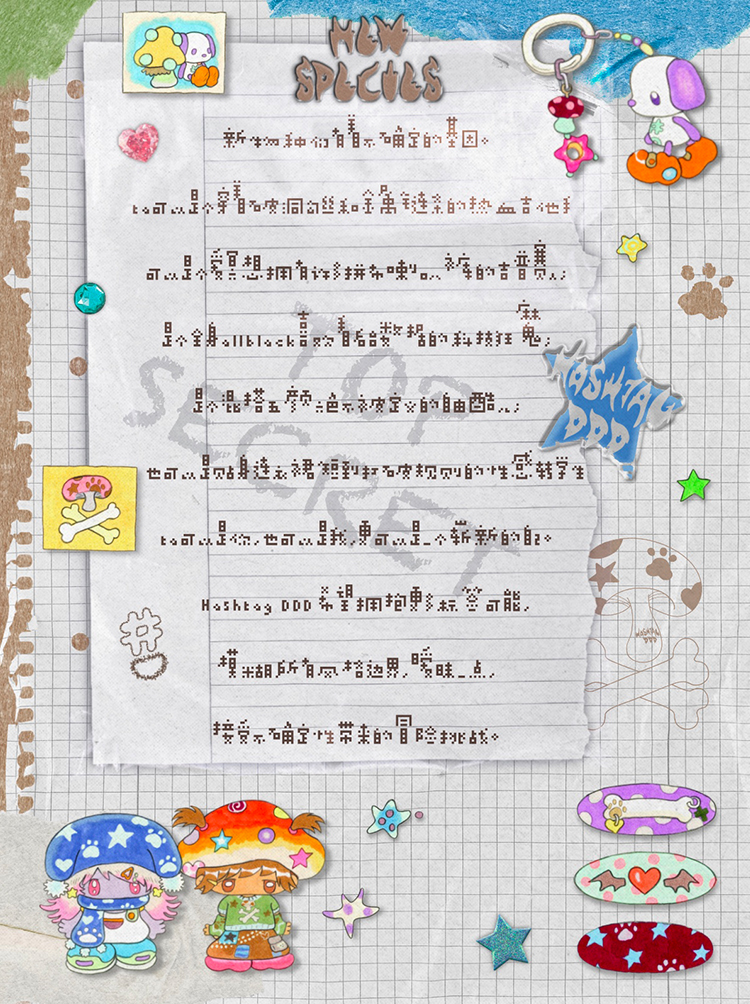 NEW
SPECIES
新物种们有着不确定的基因。
ta可以是个穿着破洞勾丝和金属链条的热血吉他手
可以是个爱冥想拥有许多拼布喇叭裤的吉普赛人;
是个全身allblack喜欢 数据的科技狂魔;
是个混搭五颜六色不被定义的自由酷儿;
也可以是 裙短到打破规则的性感转学生
ta可以是你,也可以是我,更可以是一个崭新的ta。
Hashtag DDD 希望拥抱更多标签可能,
模糊所有风格边界,暧昧一点,
接受不确定性带来的冒险挑战。
TOP
SECRET
HASHTAG
DDD
#
HASHTAG
DDD